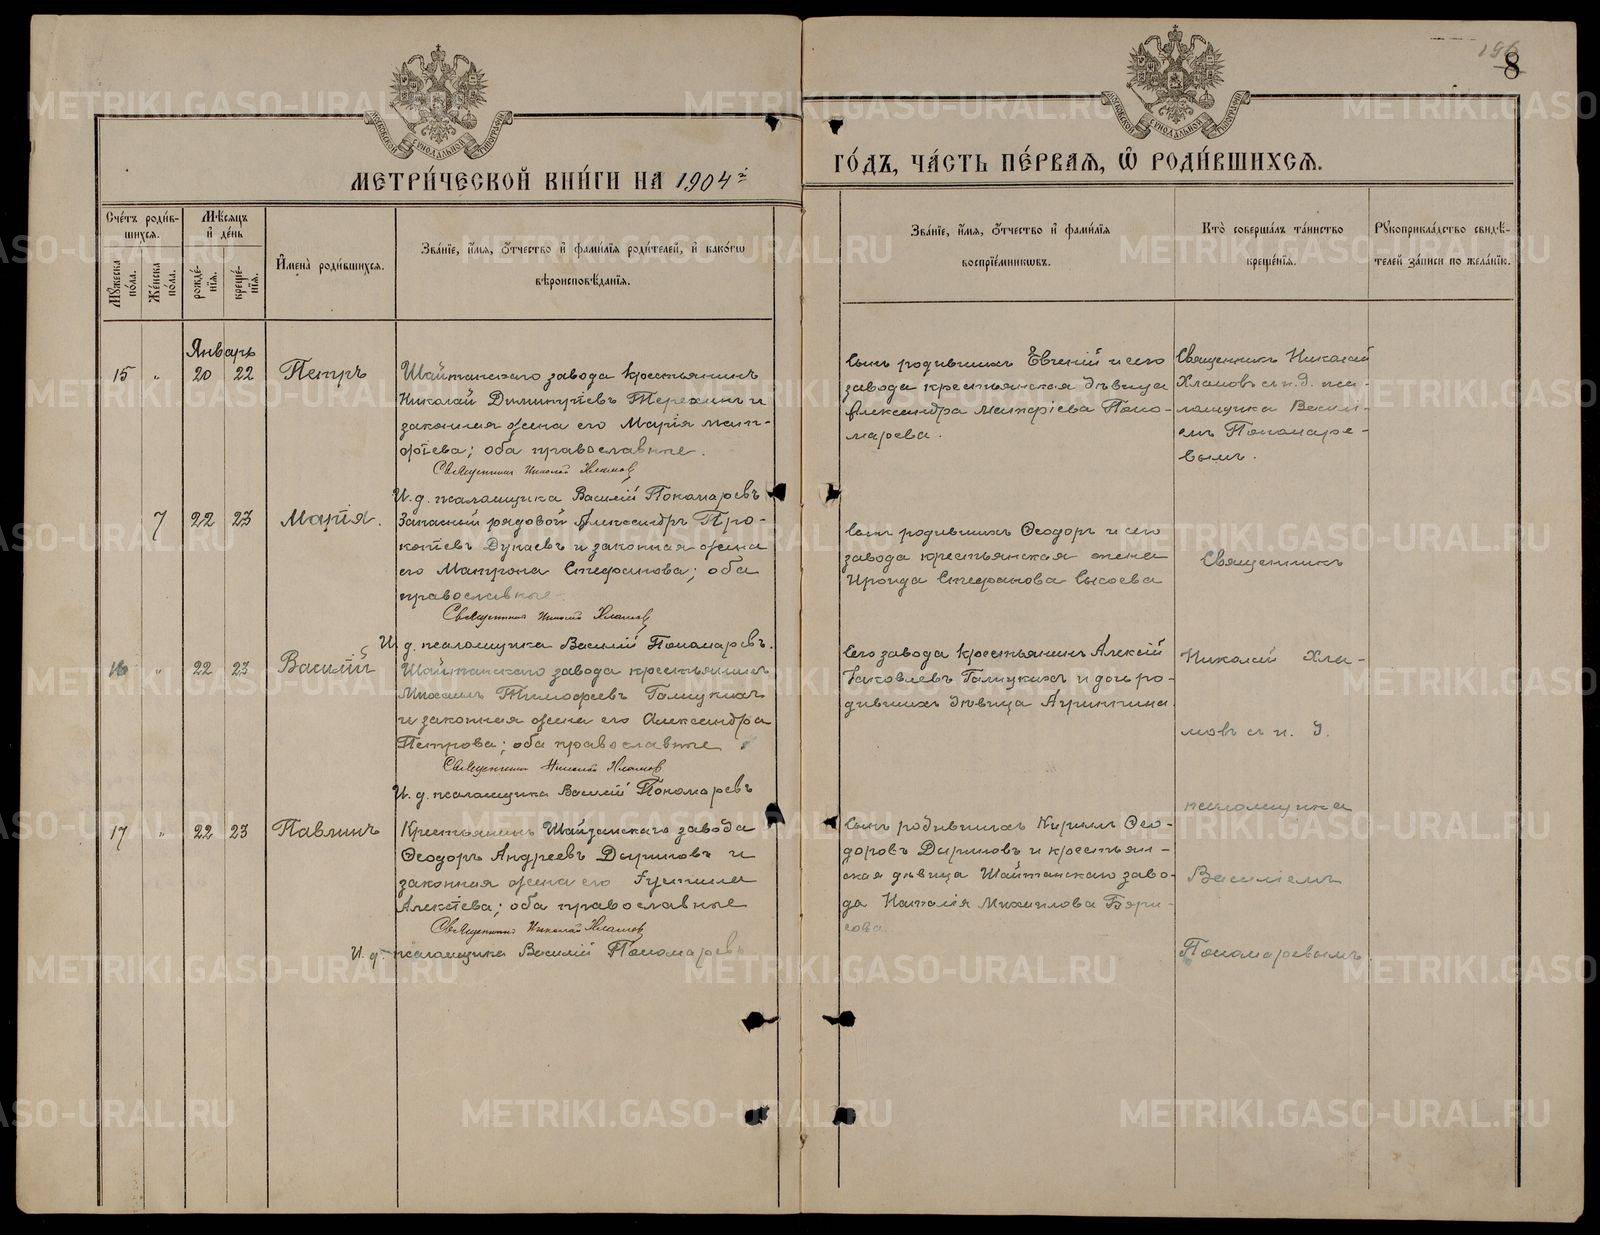 196
8
МЕТРИ́ЧЕСКОЙ КНИ́ГИ НА 1904й
ГО́ДЪ, ЧА́СТЬ ПЕ́РВАЯ, Ѡ РОДИ́ВШИХСЯ.
Сче́тъ роди́в-
шихся.
Мꙋ́жеска по́ла.
Же́нска по́ла.
Мѣ́сяцъ
и҆ де́нь
рожде́-
нїя.
креще́-
нїя.
И҆мена̀ роди́вшихся.
Зва́нїе, и҆́мя, о҆́тчество и҆ фами́лїя роди́телей, и҆ како́гѡ
вѣроисповѣ́данїя.
Зва́нїе, и҆́мя, о҆́тчество и҆ фами́лїя
воспрїе́мникѡвъ.
Кто̀ соверша́лъ та́инство
креще́нїя.
Рꙋкоприкла́дство свидѣ́-
телей за́писи по жела́нїю.
Январь
15 „ 20 22 Петръ
Шайтанскаго завода крестьянинъ
Николай Димитріевъ Терехинъ и
законная жена его Марія Мат-
фіева; оба православные.
Священникъ Николай Хламов
И. д. псаломщика Василій Пономаревъ
Сынъ родившихъ Евгеній и сего
завода крестьянская дѣвица
Александра Матфіева Поно-
марева.
Священникъ Николай
Хламовъ съ и. д. пса-
ломщика Васили-
емъ Пономаре-
вымъ.
7 22 23 Марія.
Запасный рядовой Александръ Про-
копіевъ Дунаевъ и законная жена
его Матрона Стефанова; оба
православные.
Священникъ Николай Хламов
И. д. псаломщика Василій Пономаревъ.
Сынъ родившихъ Ѳеодоръ и сего
завода крестьянская жена
Ироида Стефанова Сысоева
Священникъ
16 „ 22 23 Василій
Шайтанскаго завода крестьянинъ
Михаилъ Тимофеевъ Галицкихъ
и законная жена его Александра
Петрова; оба православные
Священникъ Николай Хламов
И. д. псаломщика Василій Пономаревъ
Сего завода крестьянинъ Алексій
Іаковлевъ Галицкихъ и дочь ро-
дившихъ дѣвица Агриппина.
Николай Хла-
мовъ съ и. д.
псаломщика
17 „ 22 23 Павлинъ
Крестьянинъ Шайтанскаго завода
Ѳеодоръ Андреевъ Дыриновъ и
законная жена его
Алексіева; оба православные
Священникъ Николай Хламов
И. д. псаломщика Василій Пономаревъ
Сынъ родившихъ Кириллъ Ѳео-
доровъ Дыриновъ и крестьян-
ская дѣвица Шайтанскаго заво-
да Наталія Михаилова Бори-
сова.
Василіемъ
Пономаревымъ.
METRIKI.GASO-URAL.RU